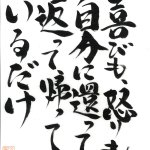 喜びも、怒りも
自分に還って
返って帰って
いるだけ